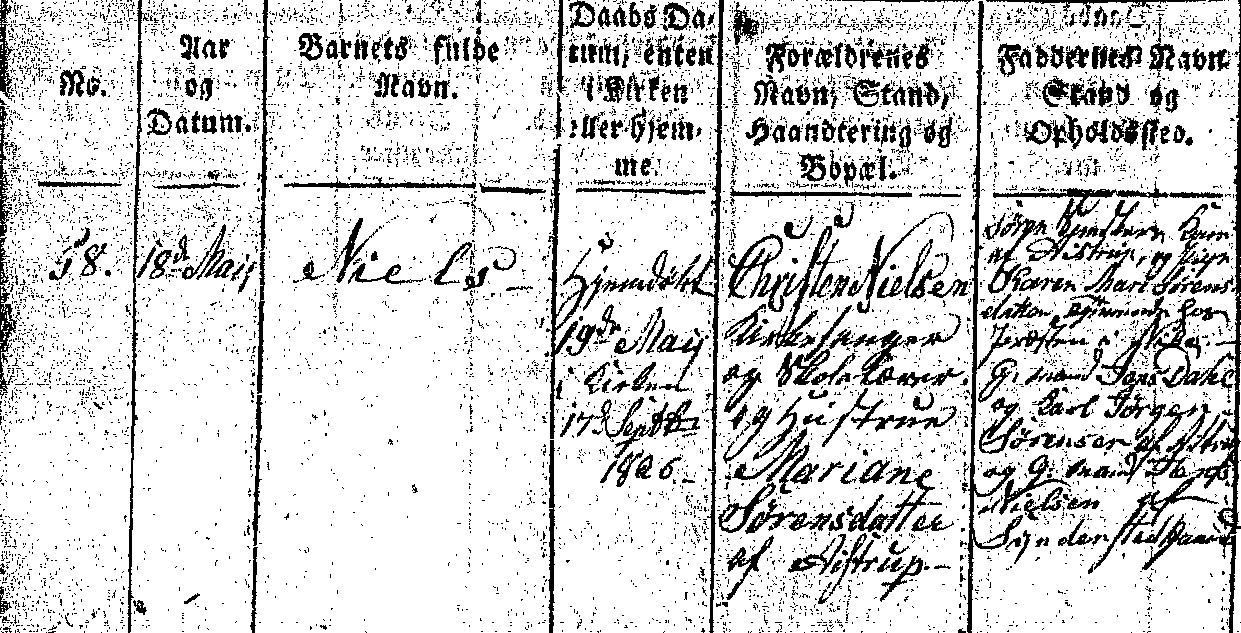 No.
Aar
og
Datum.
Barnets fulde
Navn.
Daabs Da-
tum, enten
i Kirken
eller hjem-
me.
Forældrenes
Navn, Stand,
Haandtering og
Bopæl.
Faddernes Navn
Stand og
Opholdssted.
58.
18de Maij
Niels
Hjemdøbt
19de Maij
i Kirken
17de Septbr
1826
Christen Nielsen
Kirkesanger
og Skolelærer
og Hustrue
Mariane
Sørensdatter
af Aistrup.
af Aistrup, og
Karen Marie Sørens-
datter hos
Præsten i
G: mand Jens Dahl
og Karl Jørgen
Sørensen af Aistrup
og G: mand
Nielsen af
Synderstedgaard